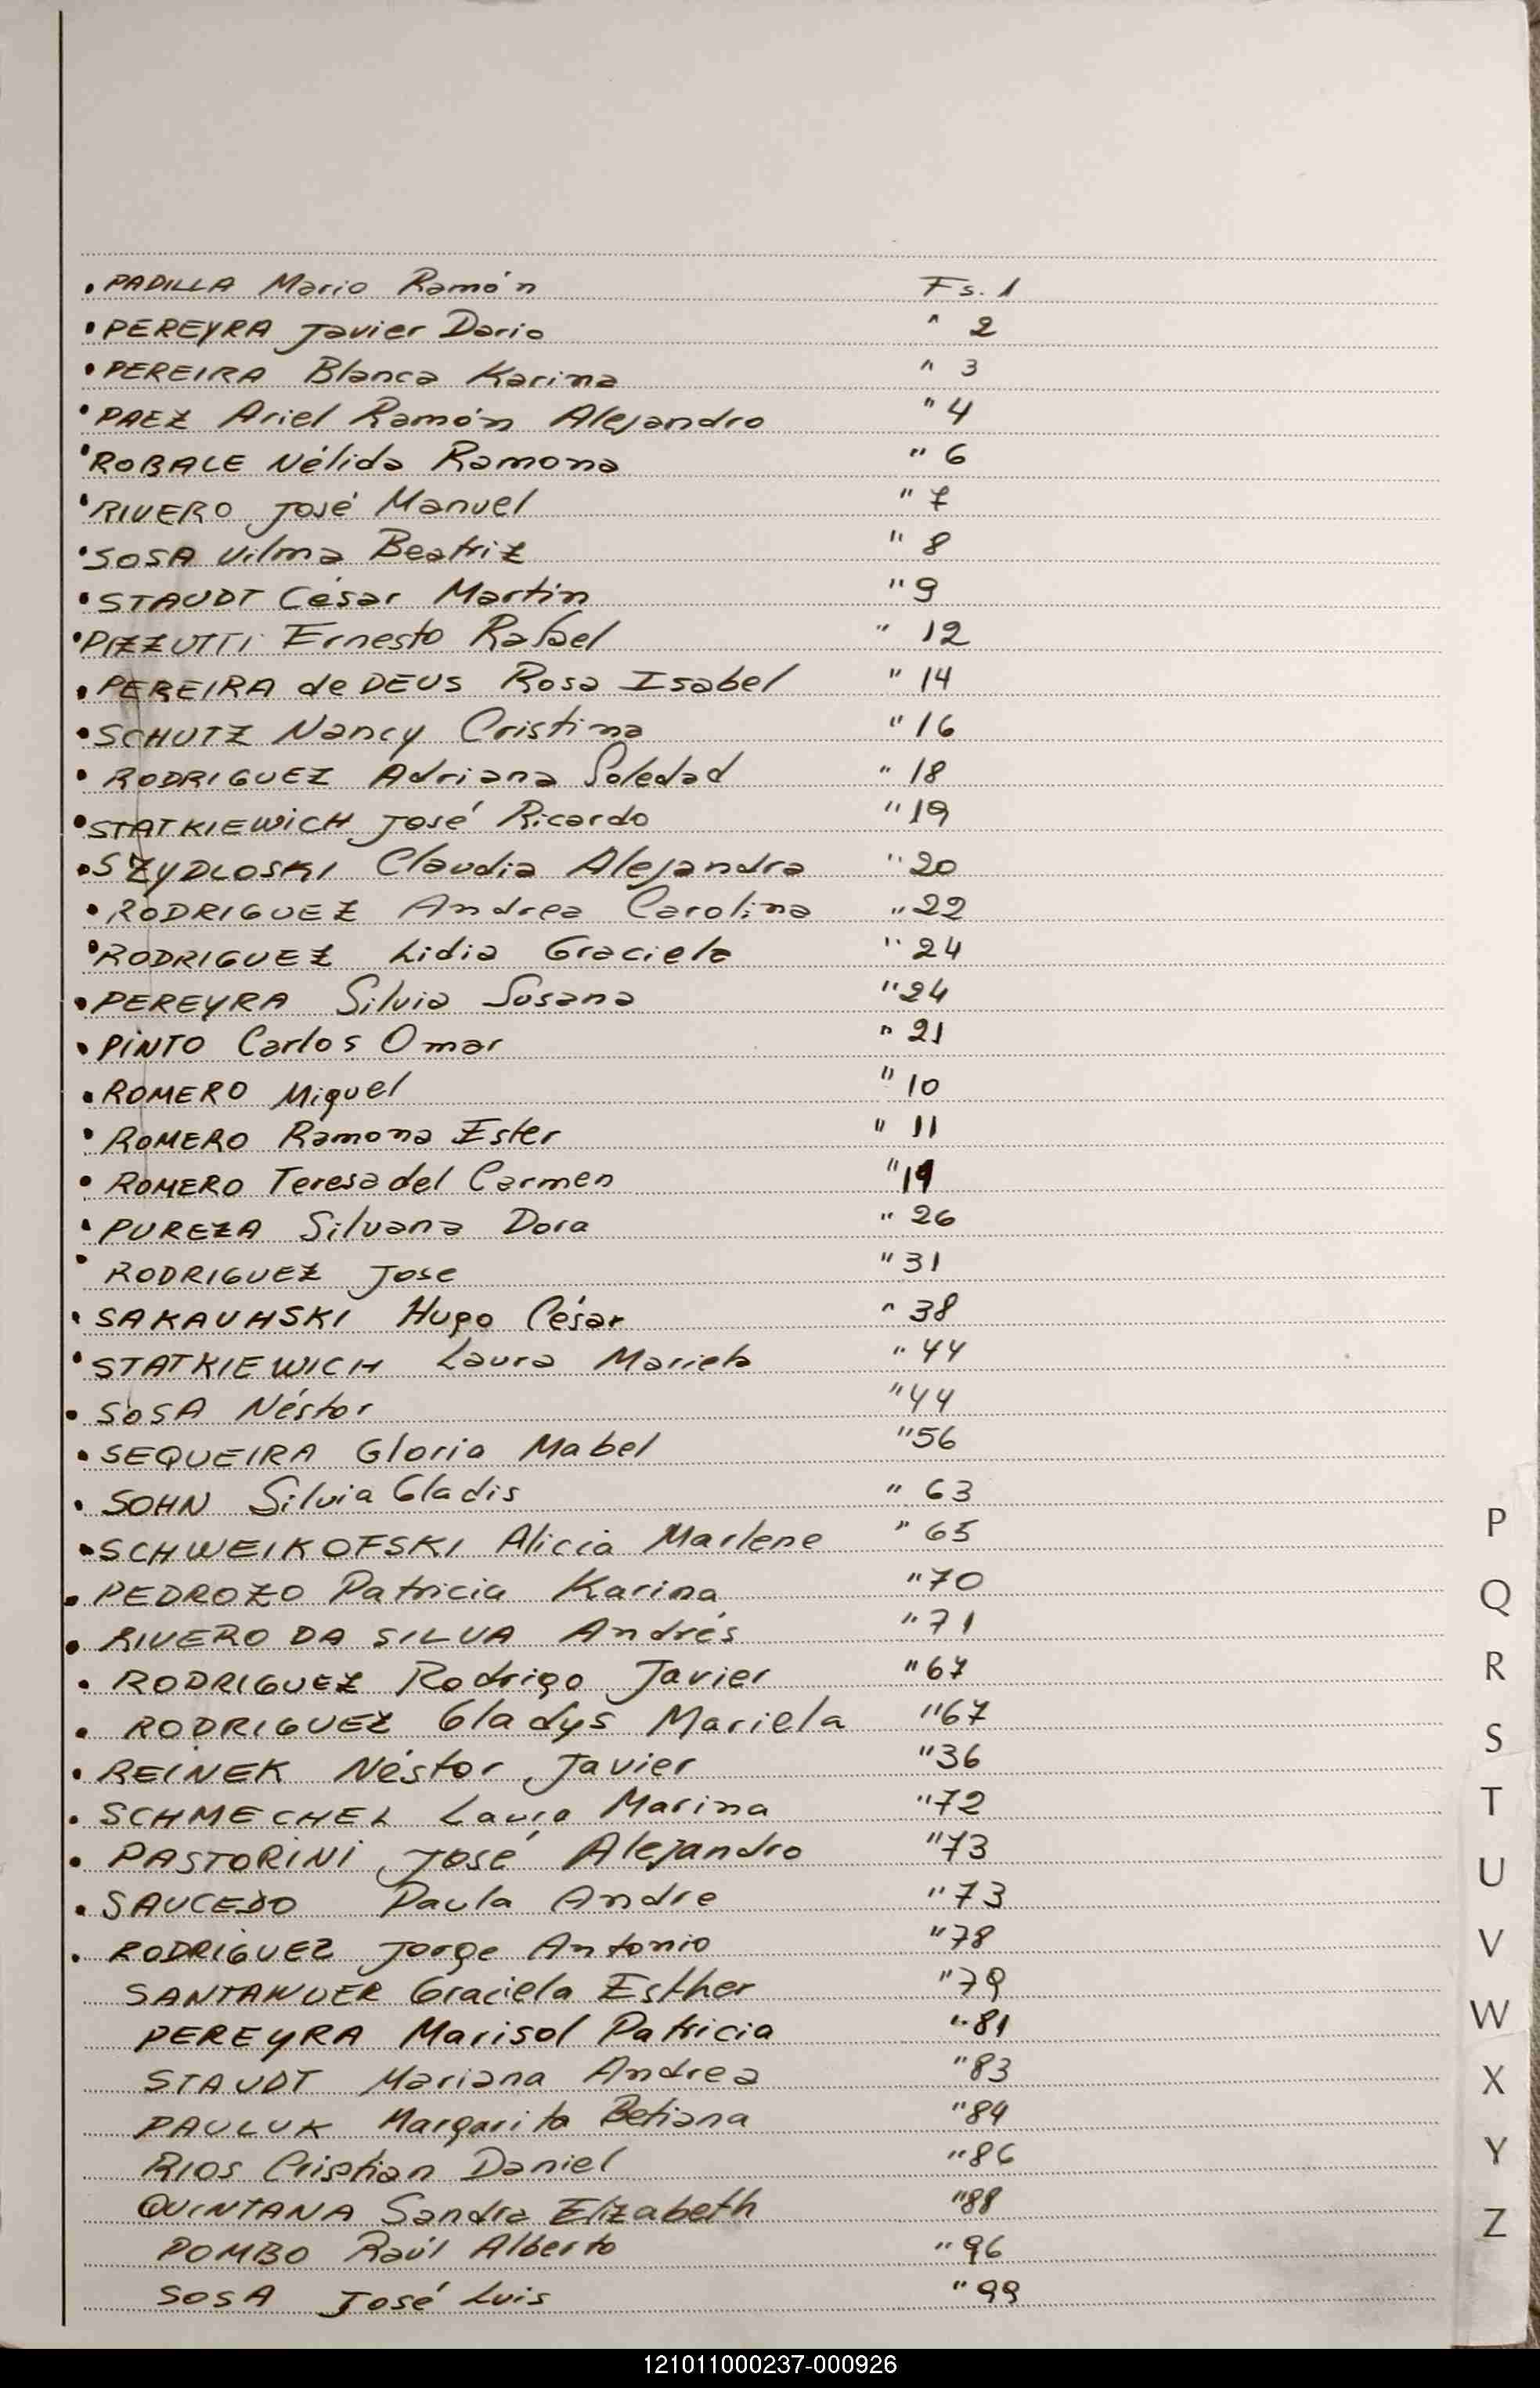 • PADILLA Mario Ramón Fs. 1
• PEREYRA Javier Dario " 2
• PEREIRA Blanca Karina " 3
• PAEZ Ariel Ramón Alejandro " 4
• ROBALE Nélida Ramona " 6
• RIVERO José Manuel " 7
• SOSA Vilma Beatriz " 8
• STAUDT César Martin " 9
• PIZZUTTI Ernesto Rafael " 12
• PEREIRA de DEUS Rosa Isabel " 14
• SCHUTZ Nancy Cristina " 16
• RODRIGUEZ Adriana Soledad " 18
• STATKIEWICH José Ricardo " 19
• SZYDLOSKI Claudia Alejandra " 20
• RODRIGUEZ Andrea Carolina " 22
• RODRIGUEZ Lidia Graciela " 24
• PEREYRA Silvia Susana " 24
• PINTO Carlos Omar " 21
• ROMERO Miguel " 10
• ROMERO Ramona Ester " 11
• ROMERO Teresa del Carmen "
• PUREZA Silvana Dora " 26
• RODRIGUEZ Jose " 31
• SAKAUHSKI Hugo César " 38
• STATKIEWICH Laura Mariela " 44
• SOSA Néstor " 44
• SEQUEIRA Gloria Mabel " 56
• SOHN Silvia Gladis " 63
• SCHWEIKOFSKI Alicia Marlene " 65
• PEDROZO Patricia Karina " 70
• RIVERO DA SILVA Andrés " 71
• RODRIGUEZ Rodrigo Javier " 67
• RODRIGUEZ Gladys Mariela " 67
• REINEK Néstor Javier " 36
• SCHMECHEL Laura Marina " 72
• PASTORINI José Alejandro " 73
• SAUCEDO Paula Andre " 73
• RODRIGUEZ Jorge Antonio " 78
SANTANDER Graciela Esther " 79
PEREYRA Marisol Patricia " 81
STAUDT Mariana Andrea " 83
PAULUK Margarita Betiana " 84
RIOS Cristian Daniel " 86
QUINTANA Sandra Elizabeth " 88
POMBO Raúl Alberto " 96
SOSA José Luis " 99
P
Q
R
S
T
U
V
W
X
Y
Z
121011000237-000926